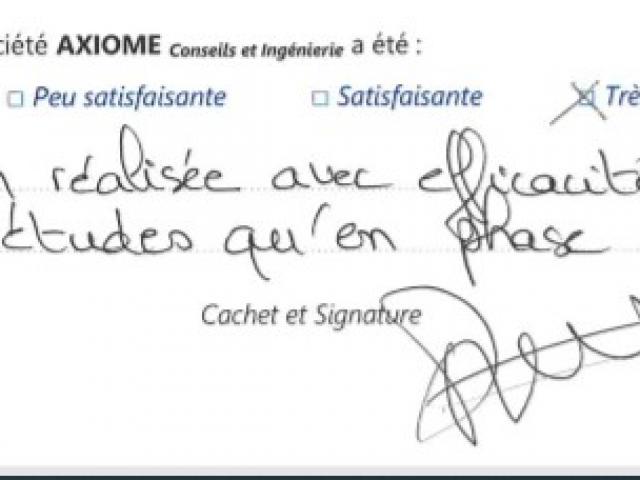 ciété AXIOME Conseils et Ingénierie a été :
□ Peu satisfaisante □ Satisfaisante ☒ Trè
réalisée avec efficacité
études qu'en phase
Cachet et Signature